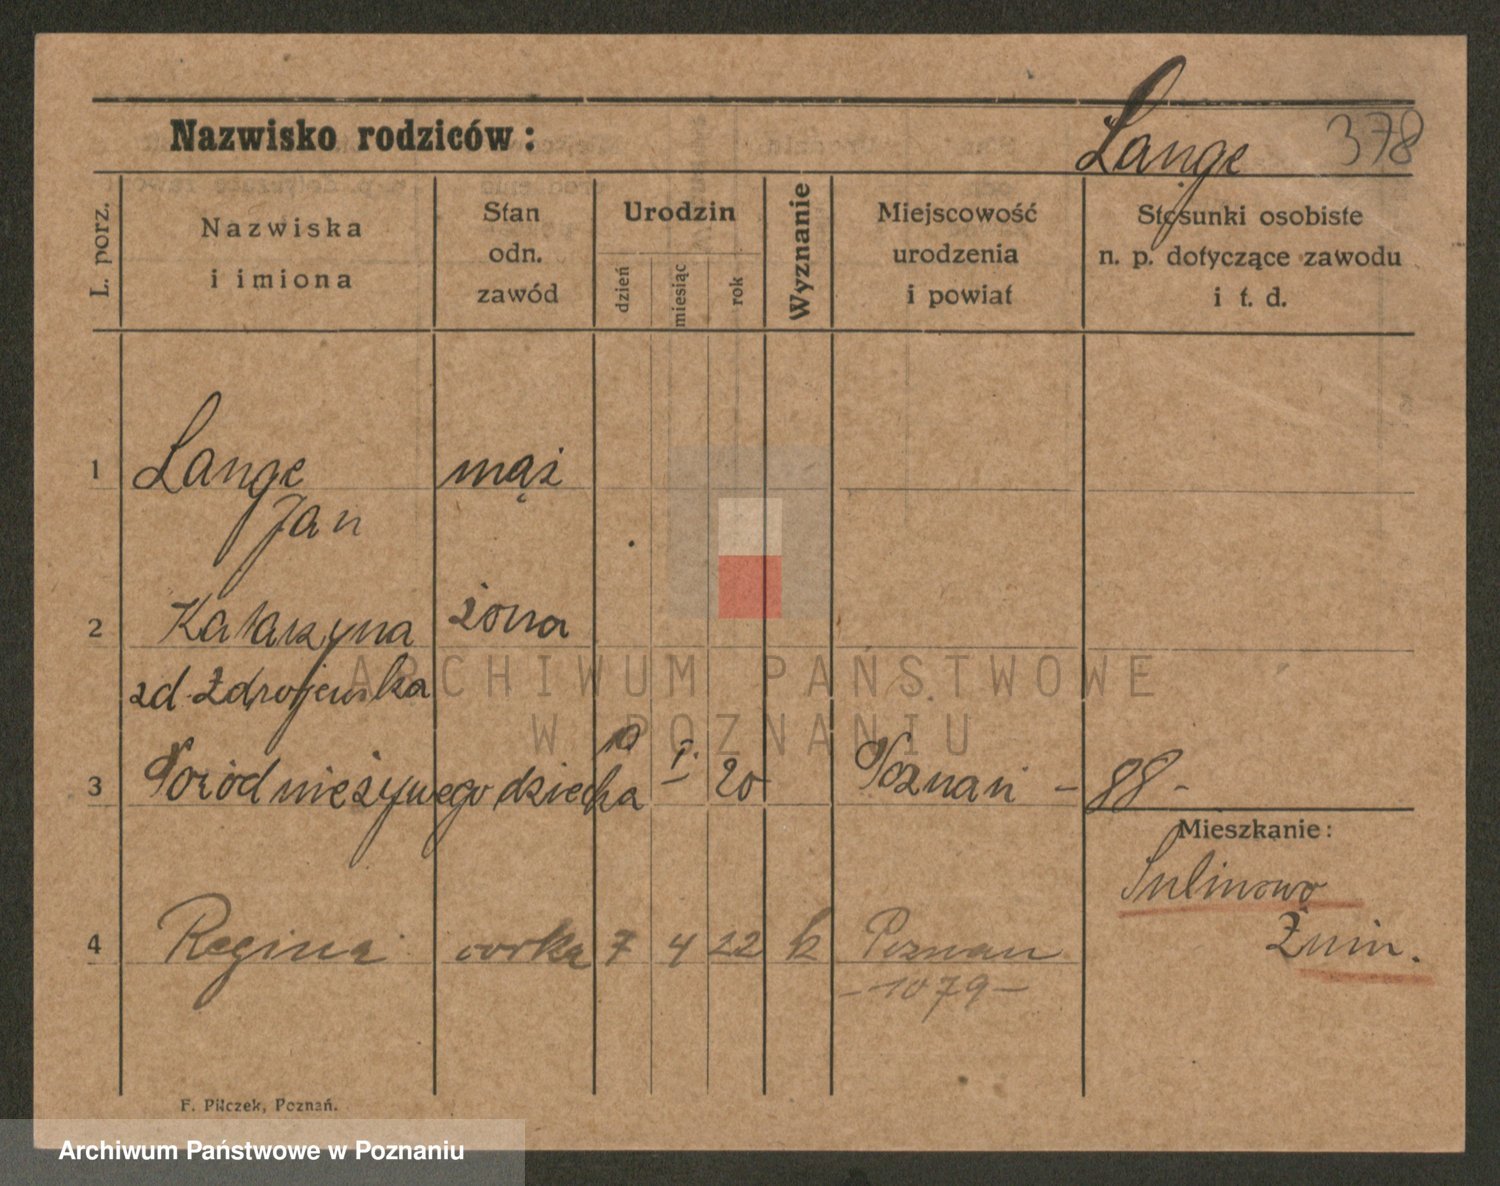 Nazwisko rodziców: Lange 378
L. porz.
Nazwiska
i imiona
Stan
odn.
zawód
Urodzin
dzień
miesiąc
rok
Wyznanie
Miejscowość
urodzenia
i powiat
Stosunki osobiste
n. p. dotyczące zawodu
i t. d.
1 Lange mąż
Jan
2 Katarzyna żona
zd. Zdrojewska
ARCHIWUM PAŃSTWOWE
W POZNANIU
3 Poród nieżywego dziecka I. 20 Poznań - 88 -
Mieszkanie:
Sulinowo
Żnin.
4 Regina corka 7 4 22 k Poznan
- 1079 -
F. Pilczek, Poznań.
Archiwum Państwowe w Poznaniu